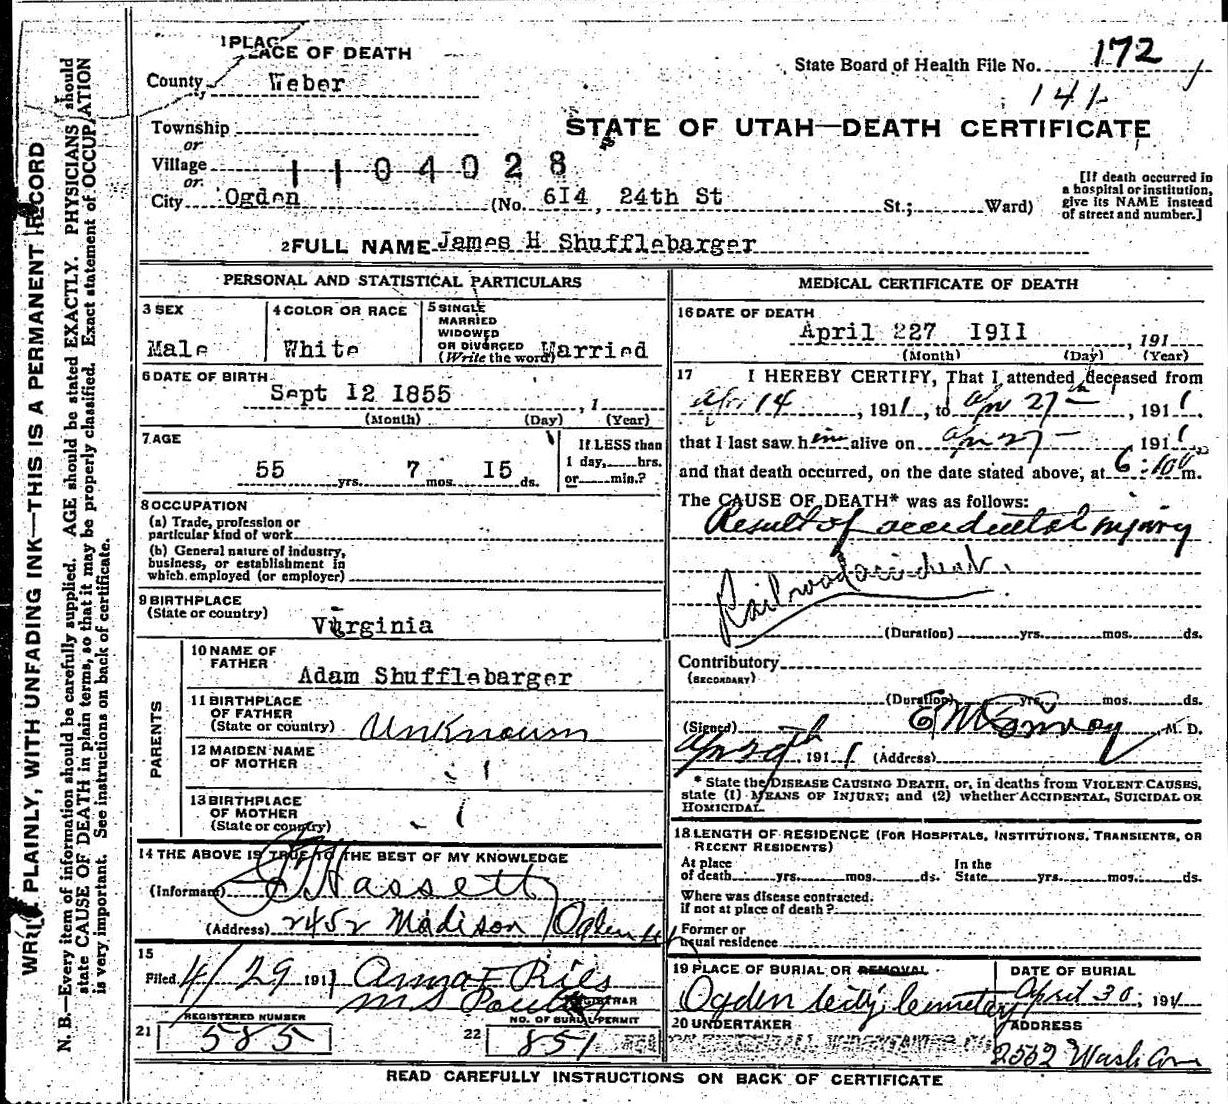 1 PLAC
PLACE OF DEATH
County Weber
State Board of Health File No. 172
141
Township
or
Village
or
1104028
STATE OF UTAH—DEATH CERTIFICATE
City Ogden (No. 614, 24th St St.; Ward)
[If death occurred in
a hospital or institution,
give its NAME instead
of street and number.]
2 FULL NAME James H Shufflebarger
PERSONAL AND STATISTICAL PARTICULARS
3 SEX
Male
4 COLOR OR RACE
White
5 SINGLE
MARRIED
WIDOWED
OR DIVORCED
(Write the word) Married
6 DATE OF BIRTH
Sept 12 1855, 1
(Month) (Day) (Year)
7 AGE
55 yrs. 7 mos. 15 ds.
If LESS than
1 day, hrs.
or min.?
8 OCCUPATION
(a) Trade, profession or
particular kind of work
(b) General nature of industry,
business, or establishment in
which employed (or employer)
9 BIRTHPLACE
(State or country)
Virginia
PARENTS
10 NAME OF
FATHER
Adam Shufflebarger
11 BIRTHPLACE
OF FATHER
(State or country) Unknown
12 MAIDEN NAME
OF MOTHER
13 BIRTHPLACE
OF MOTHER
(State or country)
14 THE ABOVE IS TRUE TO THE BEST OF MY KNOWLEDGE
(Informant) Hassett
(Address) 2452 Madison Ogden
15
Filed 4/29 1911 Anna F Ries
REGISTRAR
REGISTERED NUMBER
21 585
NO. OF BURIAL PERMIT
22 851
MEDICAL CERTIFICATE OF DEATH
16 DATE OF DEATH
April 227 1911, 191
(Month) (Day) (Year)
17 I HEREBY CERTIFY, That I attended deceased from
Apri 14, 1911, to Apr 27th, 1911,
that I last saw him alive on Apr 27 1911
and that death occurred, on the date stated above, at 6: m.
The CAUSE OF DEATH* was as follows:
Result of accidental injury
Railroad accident.
(Duration) yrs. mos. ds.
Contributory
(SECONDARY)
(Duration) yrs. mos. ds.
(Signed) E M Conroy, M. D.
Apr 29th 1911 (Address)
* State the DISEASE CAUSING DEATH, or, in deaths from VIOLENT CAUSES,
state (1) MEANS OF INJURY; and (2) whether ACCIDENTAL, SUICIDAL OR
HOMICIDAL.
18 LENGTH OF RESIDENCE (FOR HOSPITALS, INSTITUTIONS, TRANSIENTS, OR
RECENT RESIDENTS)
At place
of death yrs. mos. ds.
In the
State yrs. mos. ds.
Where was disease contracted.
if not at place of death?
Former or
usual residence
19 PLACE OF BURIAL OR REMOVAL
Ogden City Cemetery
DATE OF BURIAL
April 30, 1911
20 UNDERTAKER
ADDRESS
2552 Wash
READ CAREFULLY INSTRUCTIONS ON BACK OF CERTIFICATE
WRITE PLAINLY, WITH UNFADING INK—THIS IS A PERMANENT RECORD
N. B.—Every item of information should be carefully supplied. AGE should be stated EXACTLY. PHYSICIANS should
state CAUSE OF DEATH in plain terms, so that it may be properly classified. Exact statement of OCCUPATION
is very important. See instructions on back of certificate.